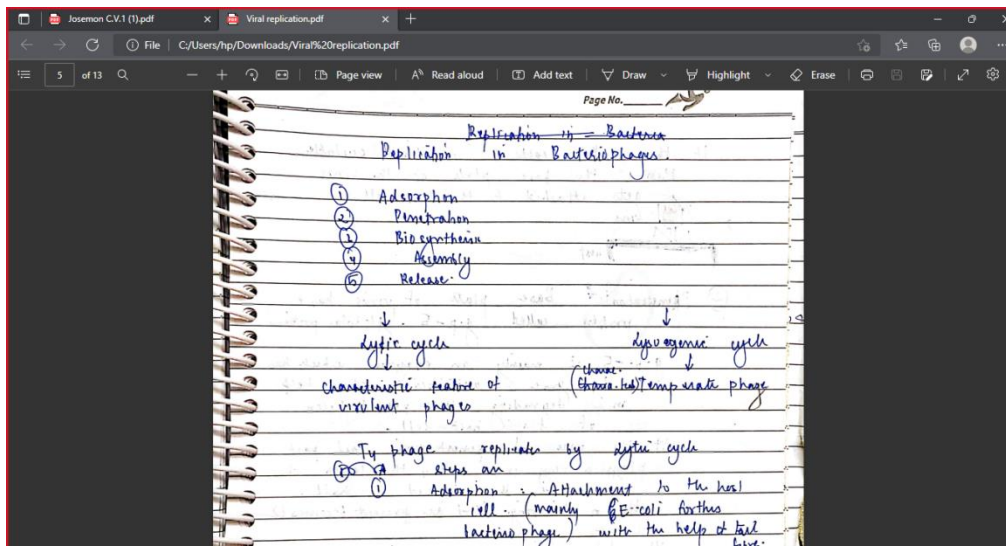 Josemon C.V.1 (1).pdf
Viral replication.pdf
File C:/Users/hp/Downloads/Viral%20replication.pdf
5 of 13 Page view Read aloud Add text Draw Highlight Erase
Page No.
Replication in = Bacteria
Replication in Bacteriophages.
① Adsorption
② Penetration
③ Biosynthesis
④ Assembly
⑤ Release.
↓ ↓
Lytic cycle Lysogenic cycle
↓ ↓
Characteristic feature of temperate phage
virulent phages
T4 phage replicates by lytic cycle
steps are
① Adsorption : Attachment to the host
cell. (mainly E-coli for this
bacteriophage) with the help of tail